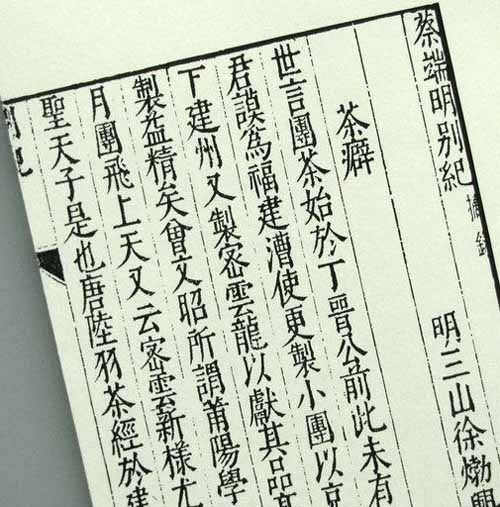 蔡端明別紀 摘錄
明三山徐𤊹興
茶癖
世言團茶始於丁晉公前此未有
君謨爲福建漕使更製小團以
下建州又製密雲龍以獻其品
製益精矣曾文昭所謂莆陽學
月團飛上天又云密雲新樣尤
聖天子是也唐陸羽茶經於建